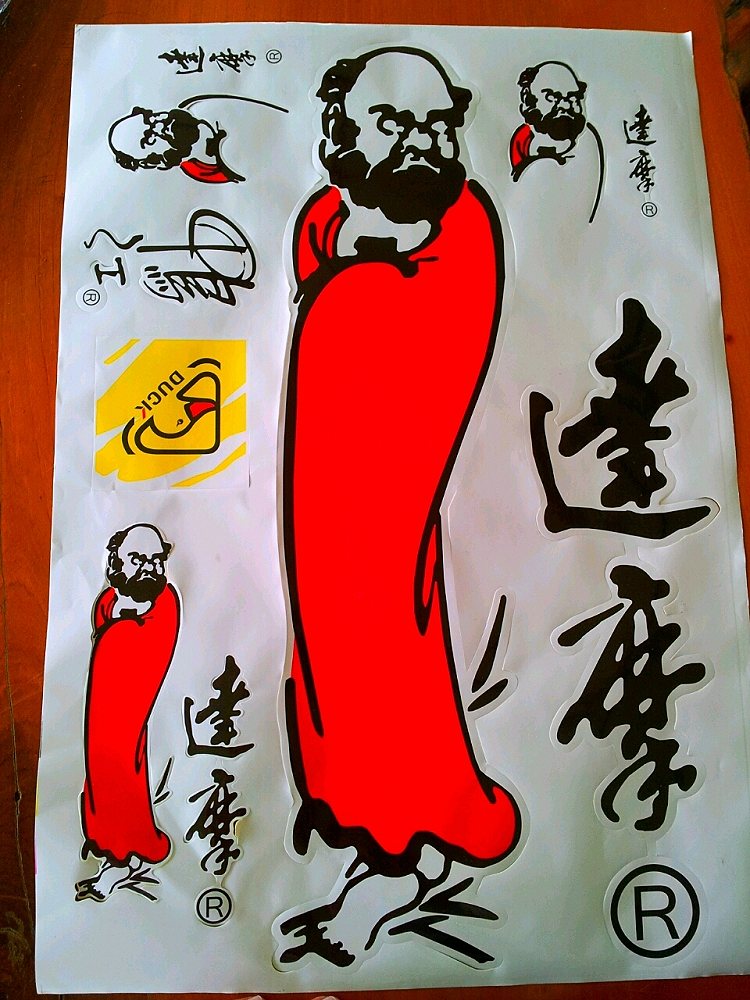 達摩®
達摩®
達
摩
®
工
®
DUCK
達
摩
®